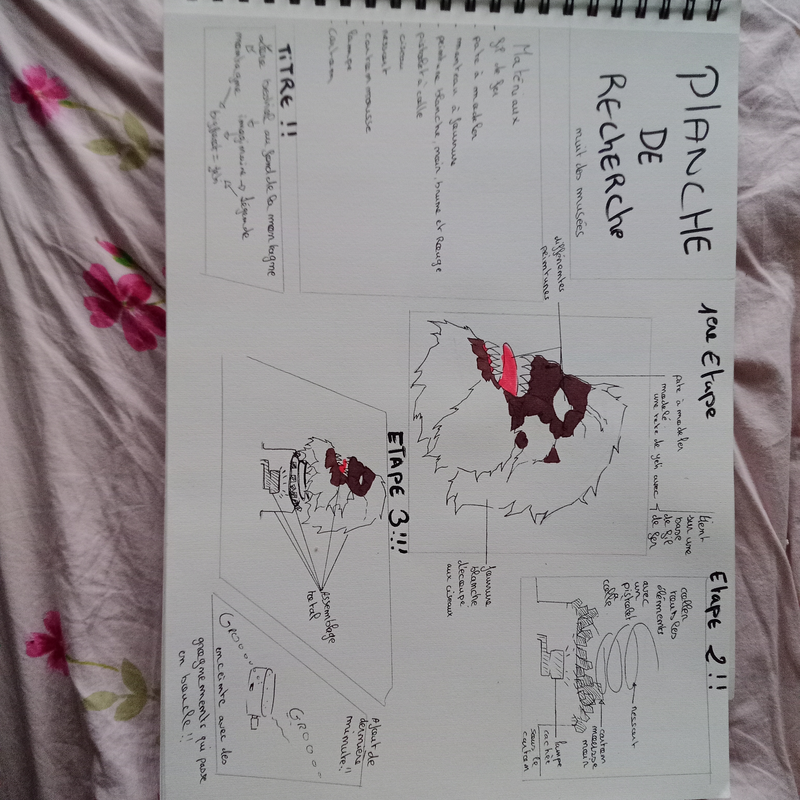 PLANCHE
DE
RECHERCHE
nuit des musées
Matériaux
- fil de fer
- pate à modeler
- manteau à fourrure
- peinture blanche, noir, brune et Rouge
- pistolet à colle
- ciseau
- ressort
- carton mousse
- lampe
- carton
TITRE !!
au fond de la montagne
montagne imaginaire → légende
bigfoot = yéti
1ère Etape
différentes
peintures
pate à modeler
modelé
une tête de yéti avec
tient
sur une
base
de fil
de fer
fourrure
blanche
découpé
aux ciseaux
ETAPE 2 !!
coller
tout les
éléments
avec
un
pistolet
colle
ressort
carton
mousse
noir
lampe
cachée
sous le
carton
ETAPE 3 !!!
Assemblage
total
Ajout de
dernière
minute !!
GROOooo
GROooo
enceinte avec des
grognements qui passe
en boucle !!